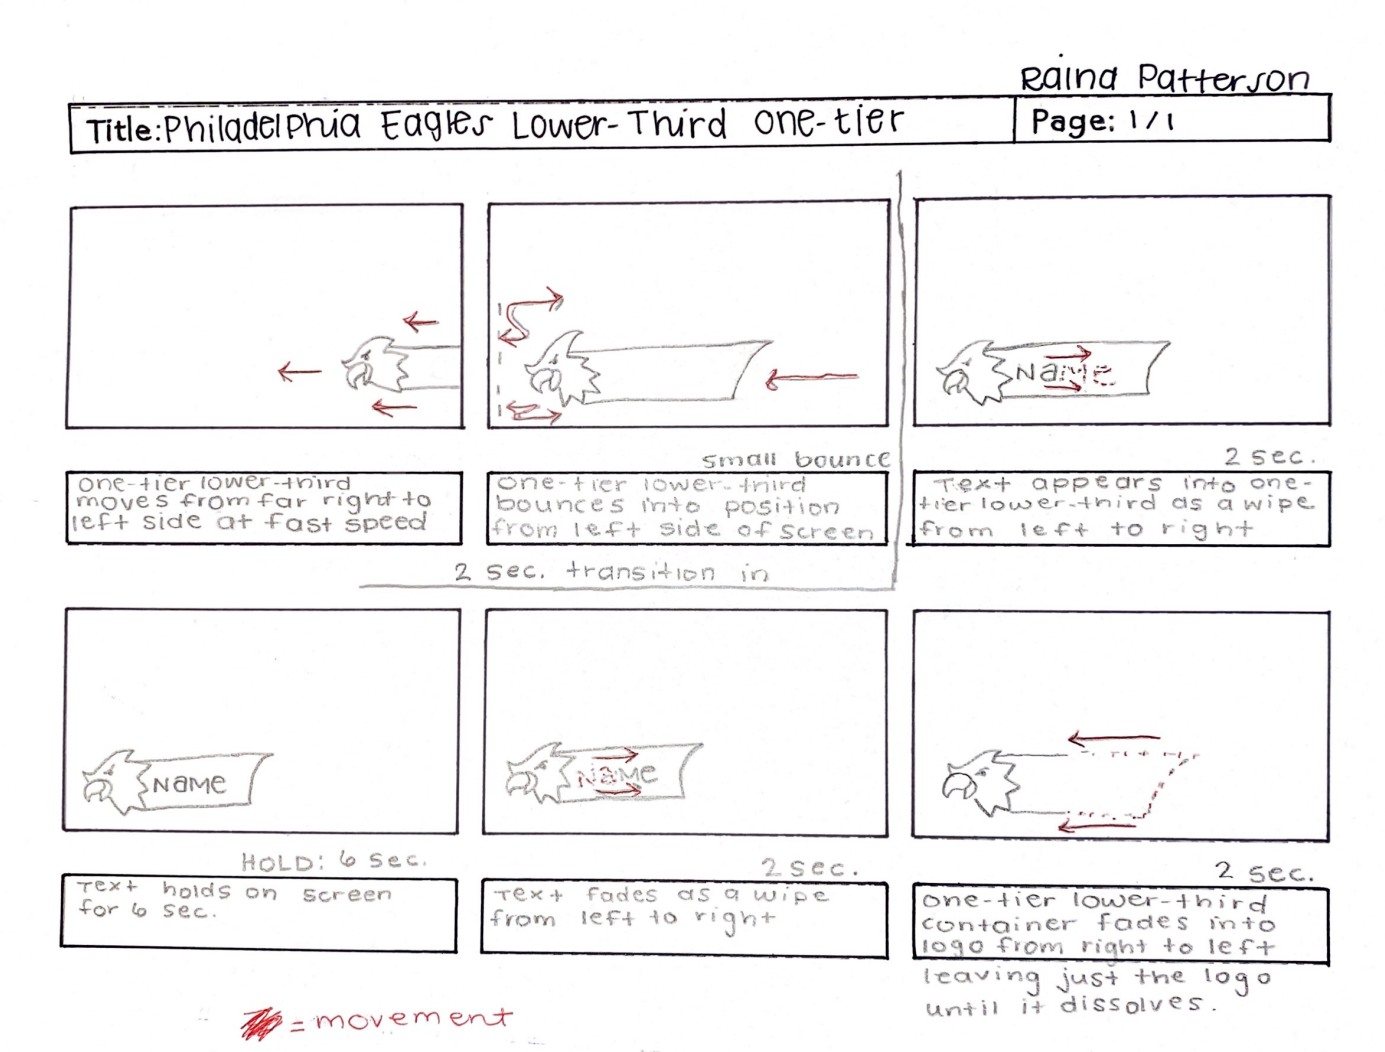 Raina Patterson
Title: Philadelphia Eagles Lower-Third One-tier
Page: 1/1
small bounce
2 sec.
One-tier lower-third
moves from far right to
left side at fast speed
One-tier lower-third
bounces into position
from left side of screen
Text appears into one-
tier lower-third as a wipe
from left to right
2 sec. transition in
NAME
NAME
NAME
HOLD: 6 sec.
2 sec.
2 sec.
Text holds on screen
for 6 sec.
Text fades as a wipe
from left to right
One-tier lower-third
container fades into
logo from right to left
leaving just the logo
until it dissolves.
= movement